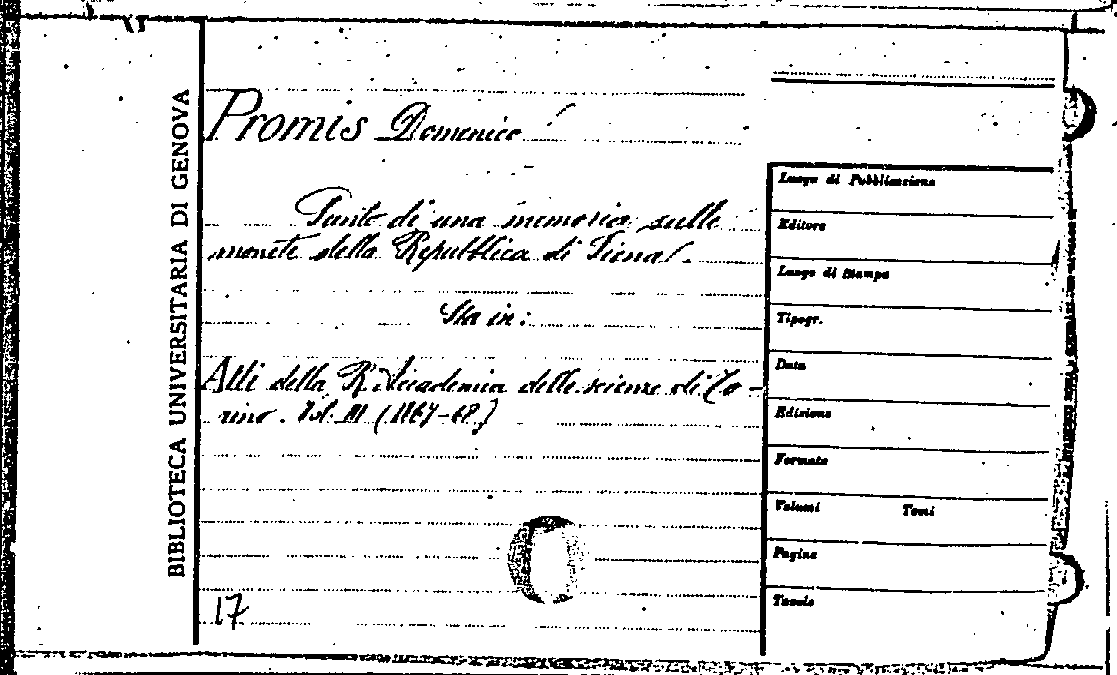 BIBLIOTECA UNIVERSITARIA DI GENOVA
Promis Domenico
Sunto di una memoria sulle
monete della Repubblica di Siena.
Sta in:
Atti della R. Accademia delle scienze di To-
rino. Vol. III (1867-68)
17
Luogo di Pubblicazione
Editore
Luogo di Stampa
Tipogr.
Data
Edizione
Formato
Volumi Tomi
Pagine
Tavole